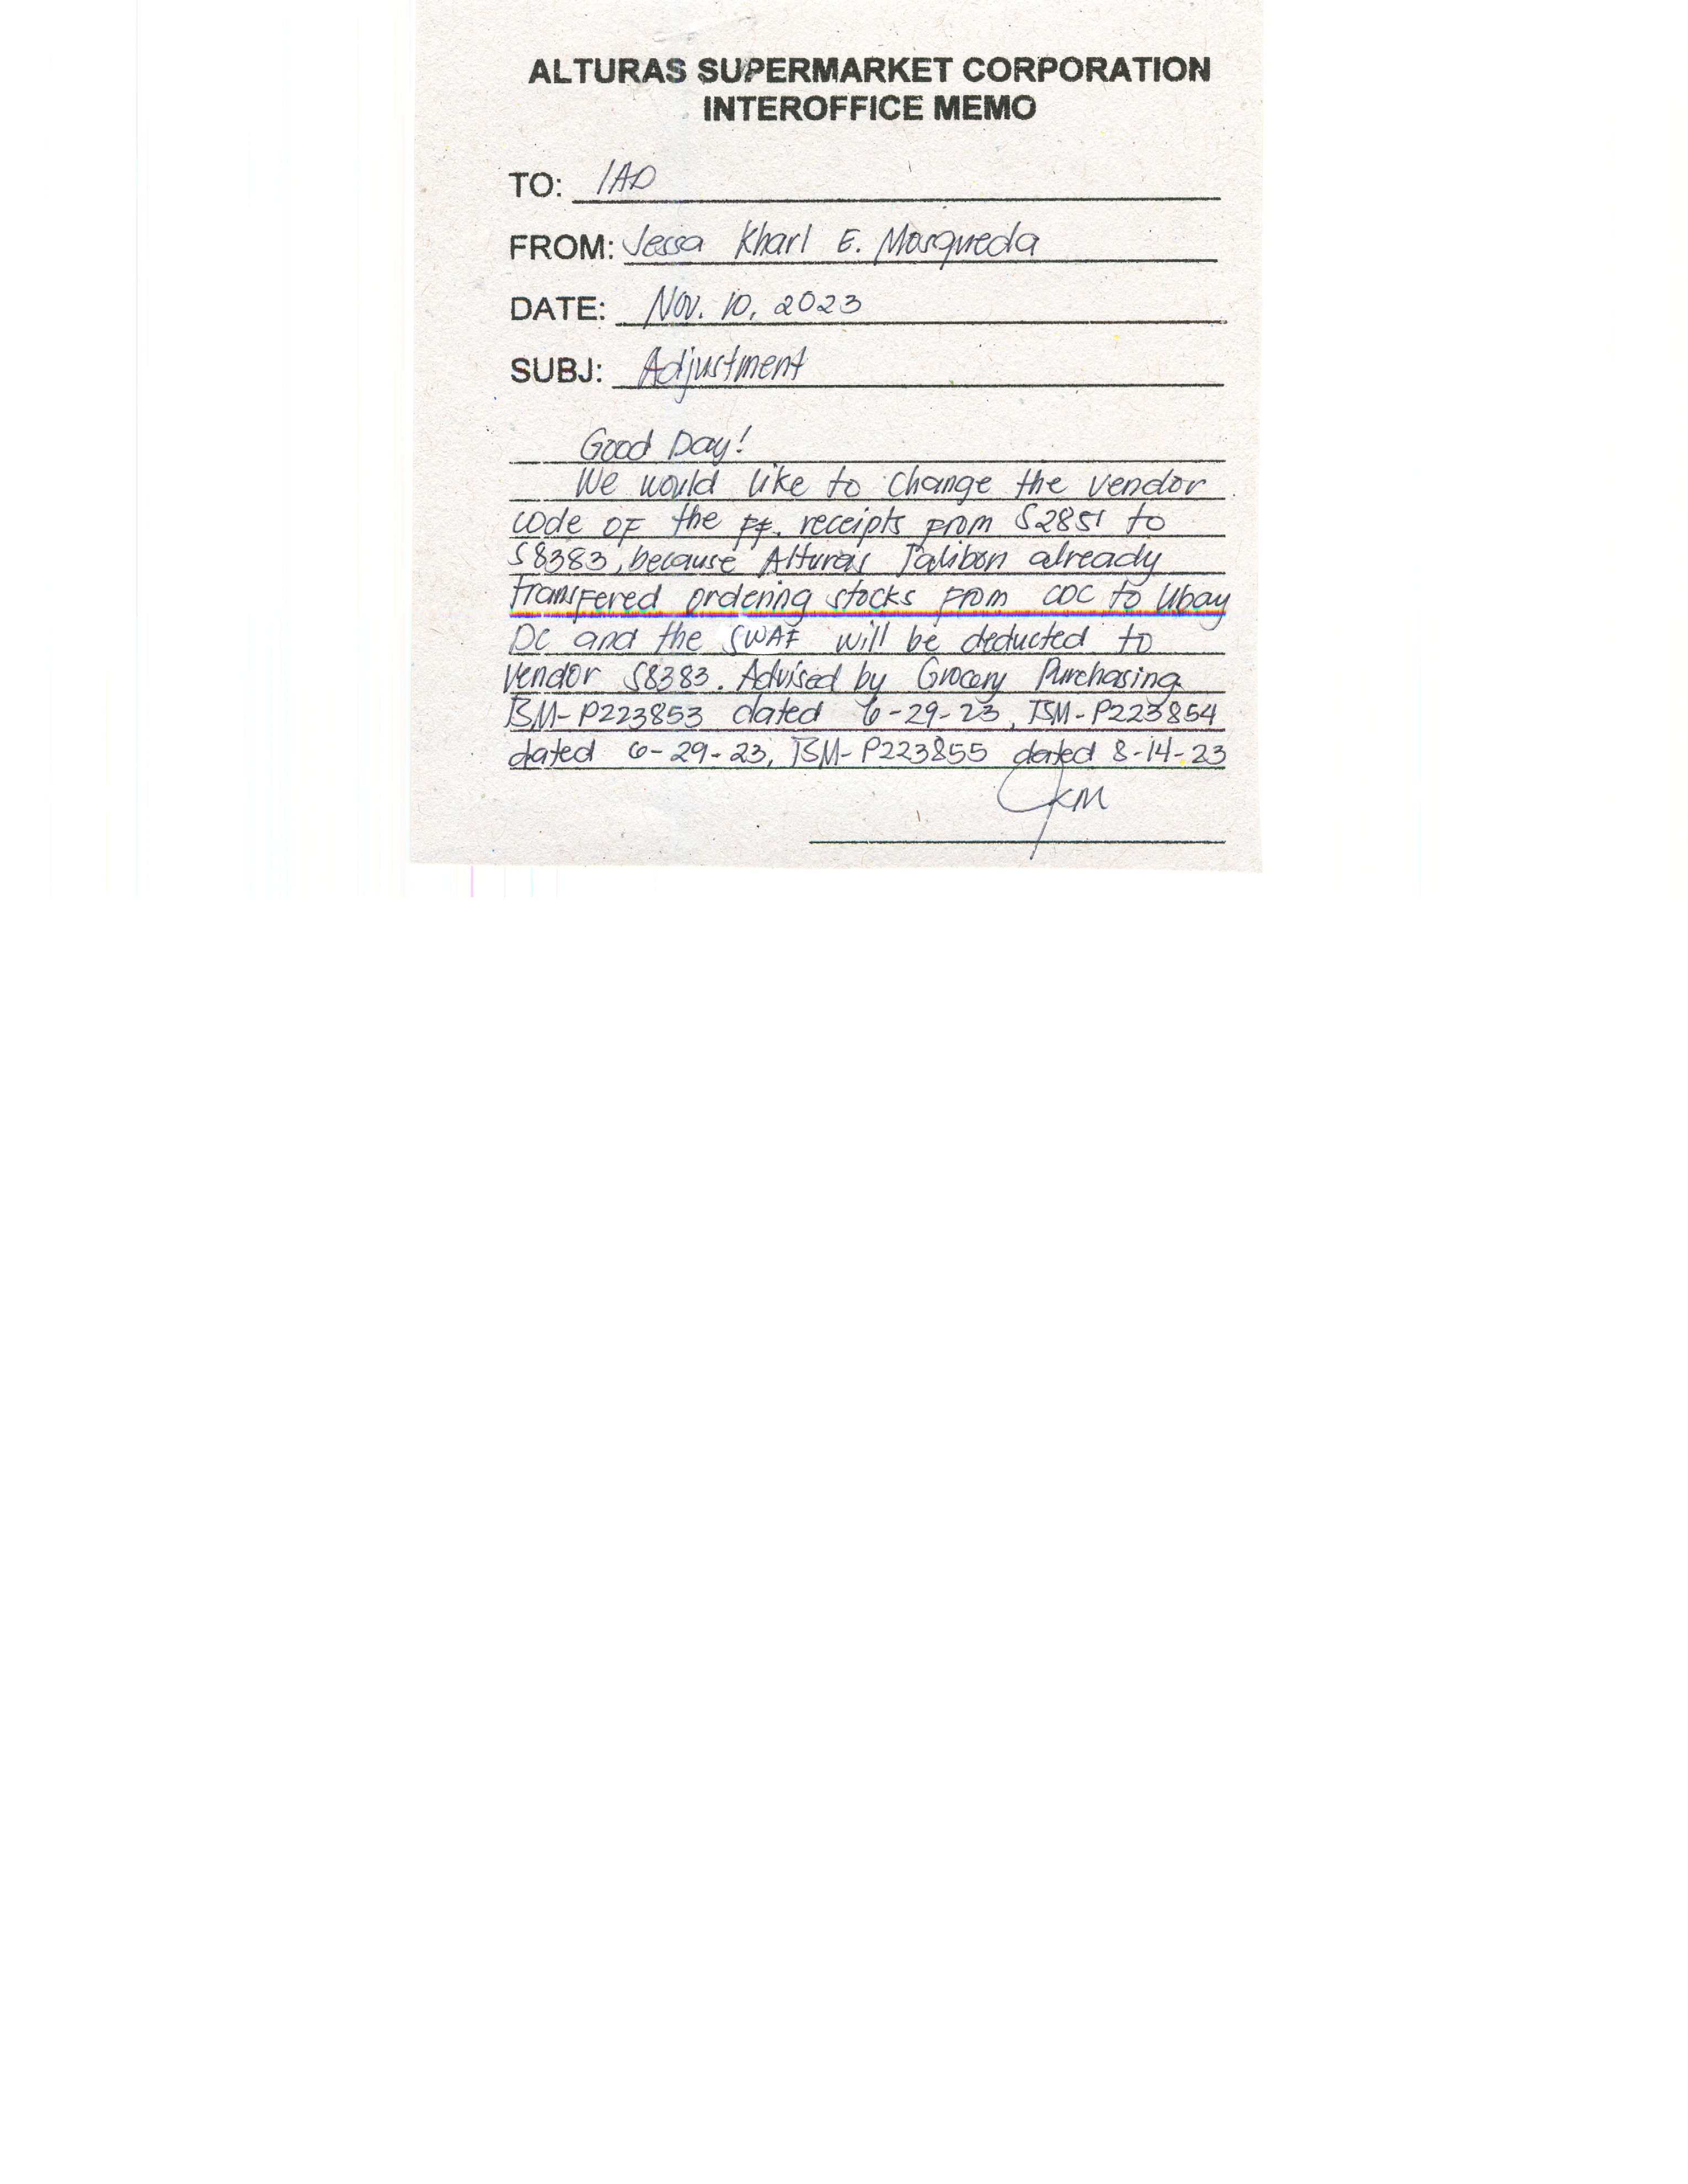 ALTURAS SUPERMARKET CORPORATION
INTEROFFICE MEMO
TO: IAD
FROM: Jessa Kharl E. Mosqueda
DATE: Nov. 10, 2023
SUBJ: Adjustment
Good Day!
We would like to change the vendor
code of the ff. receipts from S2851 to
S8383, because Alturas Talibon already
transfered ordering stocks from CDC to Ubay
DC and the SWAF will be deducted to
vendor S8383. Advised by Grocery Purchasing
TSM-P223853 dated 6-29-23, TSM-P223854
dated 6-29-23, TSM-P223855 dated 8-14-23
JKM